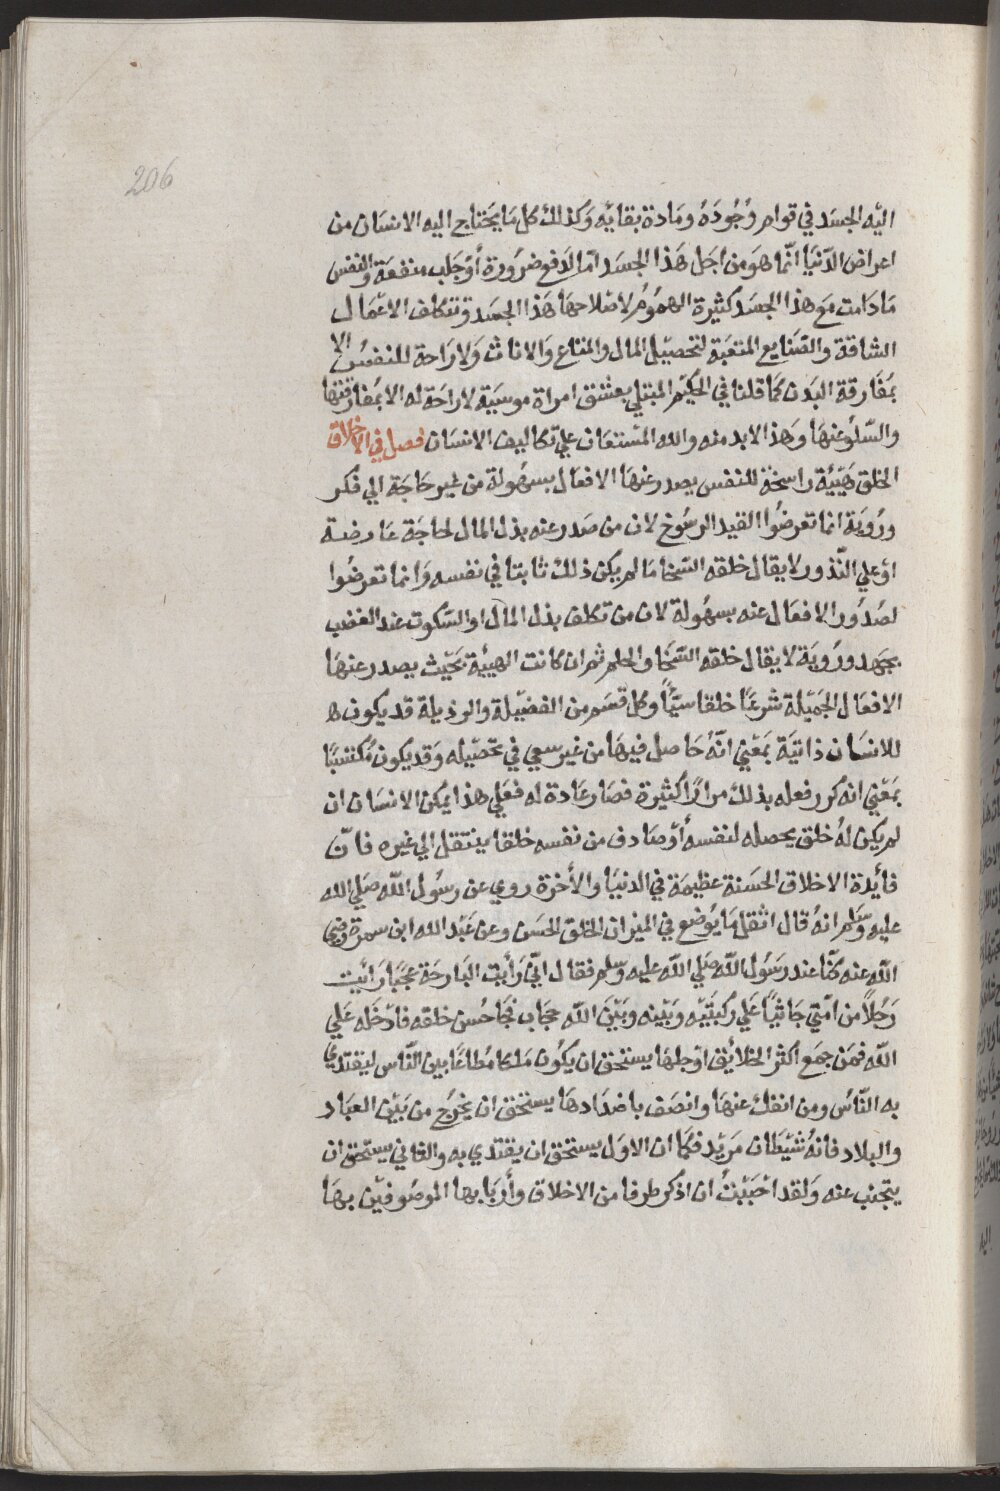 206
اليه الجسد في قوام وُجُودَهُ ومادة بقايه وَكذلك كل مَا يحتاج اليه الانسَان من
اعراض الدّنيَا انّما هوَ من اجَل هَذا الجسَد امّا لدَفع ضَرورة أوْ جَلب منفعَة والنفس
مَا دَامت مع هَذا الجسَد كثيرة الهمُومُ لاصْلاحهَا هَذا الجسَد وتتكلف الاعْمَال
الشاقة والصَنايع المتعَبة لتحصيْل المال والمتاع وَالاثاث وَلا رَاحة للنفسُ الا
بمُفارقة البَدن كمَا قلنا في الحكيْم المبتلي بعشق امراة موسيَة لا رَاحَة له الا بمفارقتها
والسّلوُ عنهَا وَهَذا لابد منه والله المسْتعَان علي تكاليف الانسَان فصل في الاخلاق
الخلق هَيْئَة راسخة للنفس يصدر عنهَا الافعَال بسهُولة من غير حَاجَة الي فكر
ورُويَة انما تعرضُوا القيد الرسُوخ لان من صَدر عنه بذل المال لحاجَة عَارضة
اوْ علي النّذور لا يقال خلقه السّخا مَا لم يكن ذلك ثابتا في نفسه وَانما تعرضُوا
لصُدُور الافعَال عنه بسهُولة لان من تكلف بذل المال او السّكوت عند الغضب
بجهد ورُويَة لا يقال خلقه السّخا والحلم ثم ان كانت الهيئة بحَيْث يصدر عنهَا
الافعَال الجَميْلة شرعًا خلقا سيّأً وكل قسْم من الفضيْلة والرذيلة قد يكون ط
للانسَان ذاتيَة بمَعْني انّهُ حَاصل فيهَا من غير سعي في تحصيْله وَقد يكون مُكتسَبًا
بمَعْني انه كرر فعله بذلك مرارًا كثيرة فصَار عَادة له فعَلي هذا يمكن الانسَان ان
لم يكن لهُ خلق يحصله لنفسه أوْ صَادف من نفسه خلقا ينتقل الي غيره فانّ
فائدة الاخلاق الحسَنة عظيمَة في الدنيَا والأخرة روي عن رسُول الله صَلي الله
عليه وَسَلم انهُ قال اثقل مَا يُوضع في الميزان الخلق الحسَن وعن عَبْد الله ابن سمرة رضي
الله عنه كنّا عند رسَوُل الله صَلي الله عليه وسلم فقال انيّ رَأيْت البَارحَة عجَبًا رَائيت
رَجُلاً من امّتي جَاثيًا عَلي رُكبتيْه وَبيْنه وبَيْنَ الله حجَاب فجَا حُسن خلقه فادْخَله عَلي
الله فمَن جمَع اكثر الخلائِق اوْ جلهَا يستحق ان يكوُن مَلكا مُطاعًا بين النّاس ليقتدي
به النّاسُ ومن انفك عنهَا واتصَف باضدَادهَا يستحق ان يخرُج من بَيْن العبَاد
والبلاد فانهُ شيْطَان مَريْد فكَمَا ان الاوَل يستحق ان يقتدي به والثاني يستحق ان
يتجنب عنه وَلقد احْبَبْتُ ان اذكر طرفا من الاخلاق وأربَابها الموصُوفيْن بهَا